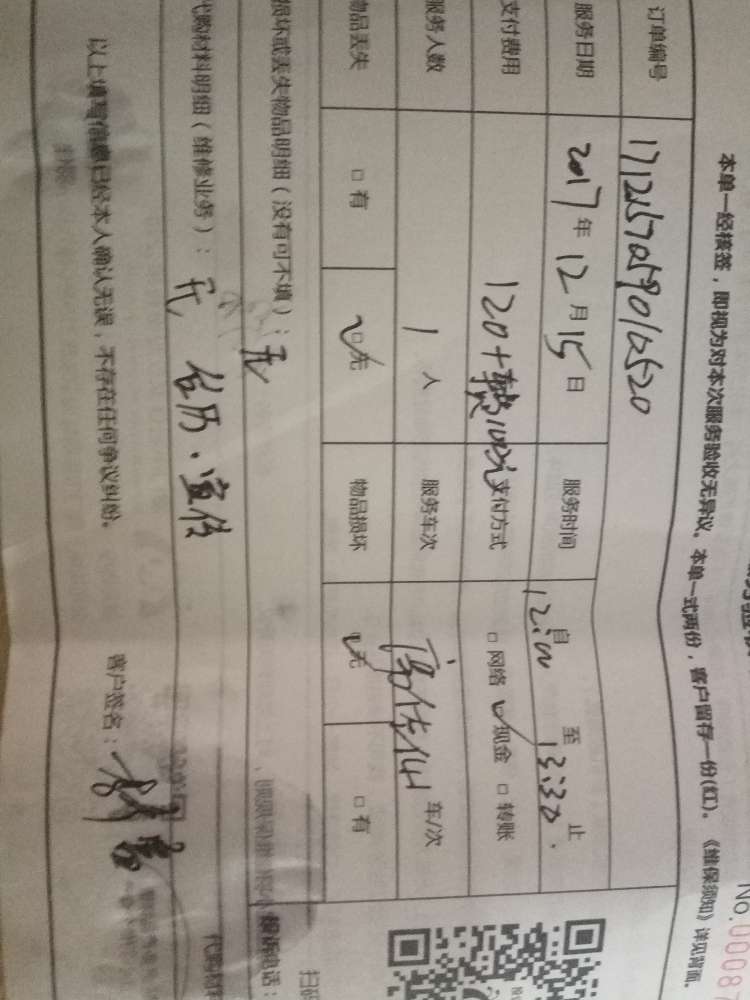 No.0008
本单一经接签，即视为对本次服务验收无异议。本单一式两份，客户留存一份(红)。《维保须知》详见背面。
订单编号
服务日期 2017年12月15日 服务时间 自12:00至13:30止
支付费用 120+ 支付方式 □网络 ☑现金 □转账
服务人数 1人 服务车次 车/次
物品丢失 □有 ☑无 物品损坏 ☑无 □有
损坏或丢失物品明细（没有可不填）：无
代购材料明细（维修业务）：无 台历、宣传
以上填写信息已经本人确认无误，不存在任何争议纠纷。 客户签名：
扫码
电话：